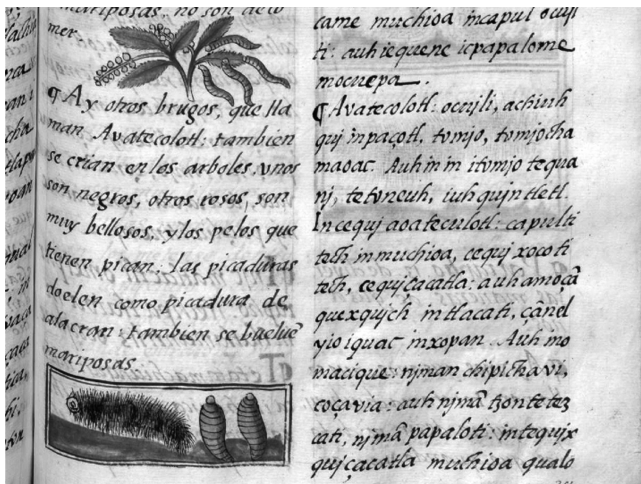 mariposas, no son de co
mer.
¶ Ay otros brugos, que lla
man Avatecolotl: tambien
se crian en los arboles, vnos
son negros, otros rosos, son
muy bellosos, y los pelos que
tienen pican: las picaduras
doelen como picadura de
alacran: tambien se bueluē
mariposas.
came muchioa incapul ocujl
ti: auh iequene icpapalome
mocuepa.
¶ Avatecolotl: ocujli, achiuh
quj inpaçotl, tomjo, tomjotcha
maoac. Auh in in itomjo tequa
nj, tetoneuh, iuhqujn tletl.
In cequj aoateculotl: capulti
tech in muchioa, cequj xocoti
tech, cequj çacatla: auh amo çā
quexqujch in tlacati, çā nel
yio iquac in xopan. Auh in o
macique: njman chipichavi,
cocavia: auh njmā tzontetez
cati, njmā papaloti: in tequjx
qujçacatla muchioa qualo